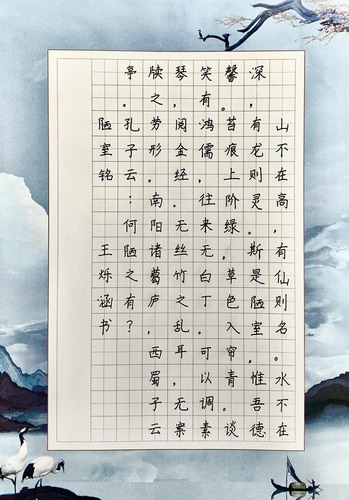 山不在高，有仙则名。水不在
深，有龙则灵。斯是陋室，惟吾德
馨。苔痕上阶绿，草色入帘青。谈
笑有鸿儒，往来无白丁。可以调素
琴，阅金经。无丝竹之乱耳，无案
牍之劳形。南阳诸葛庐，西蜀子云
亭。孔子云：何陋之有？
陋室铭 王烁涵书